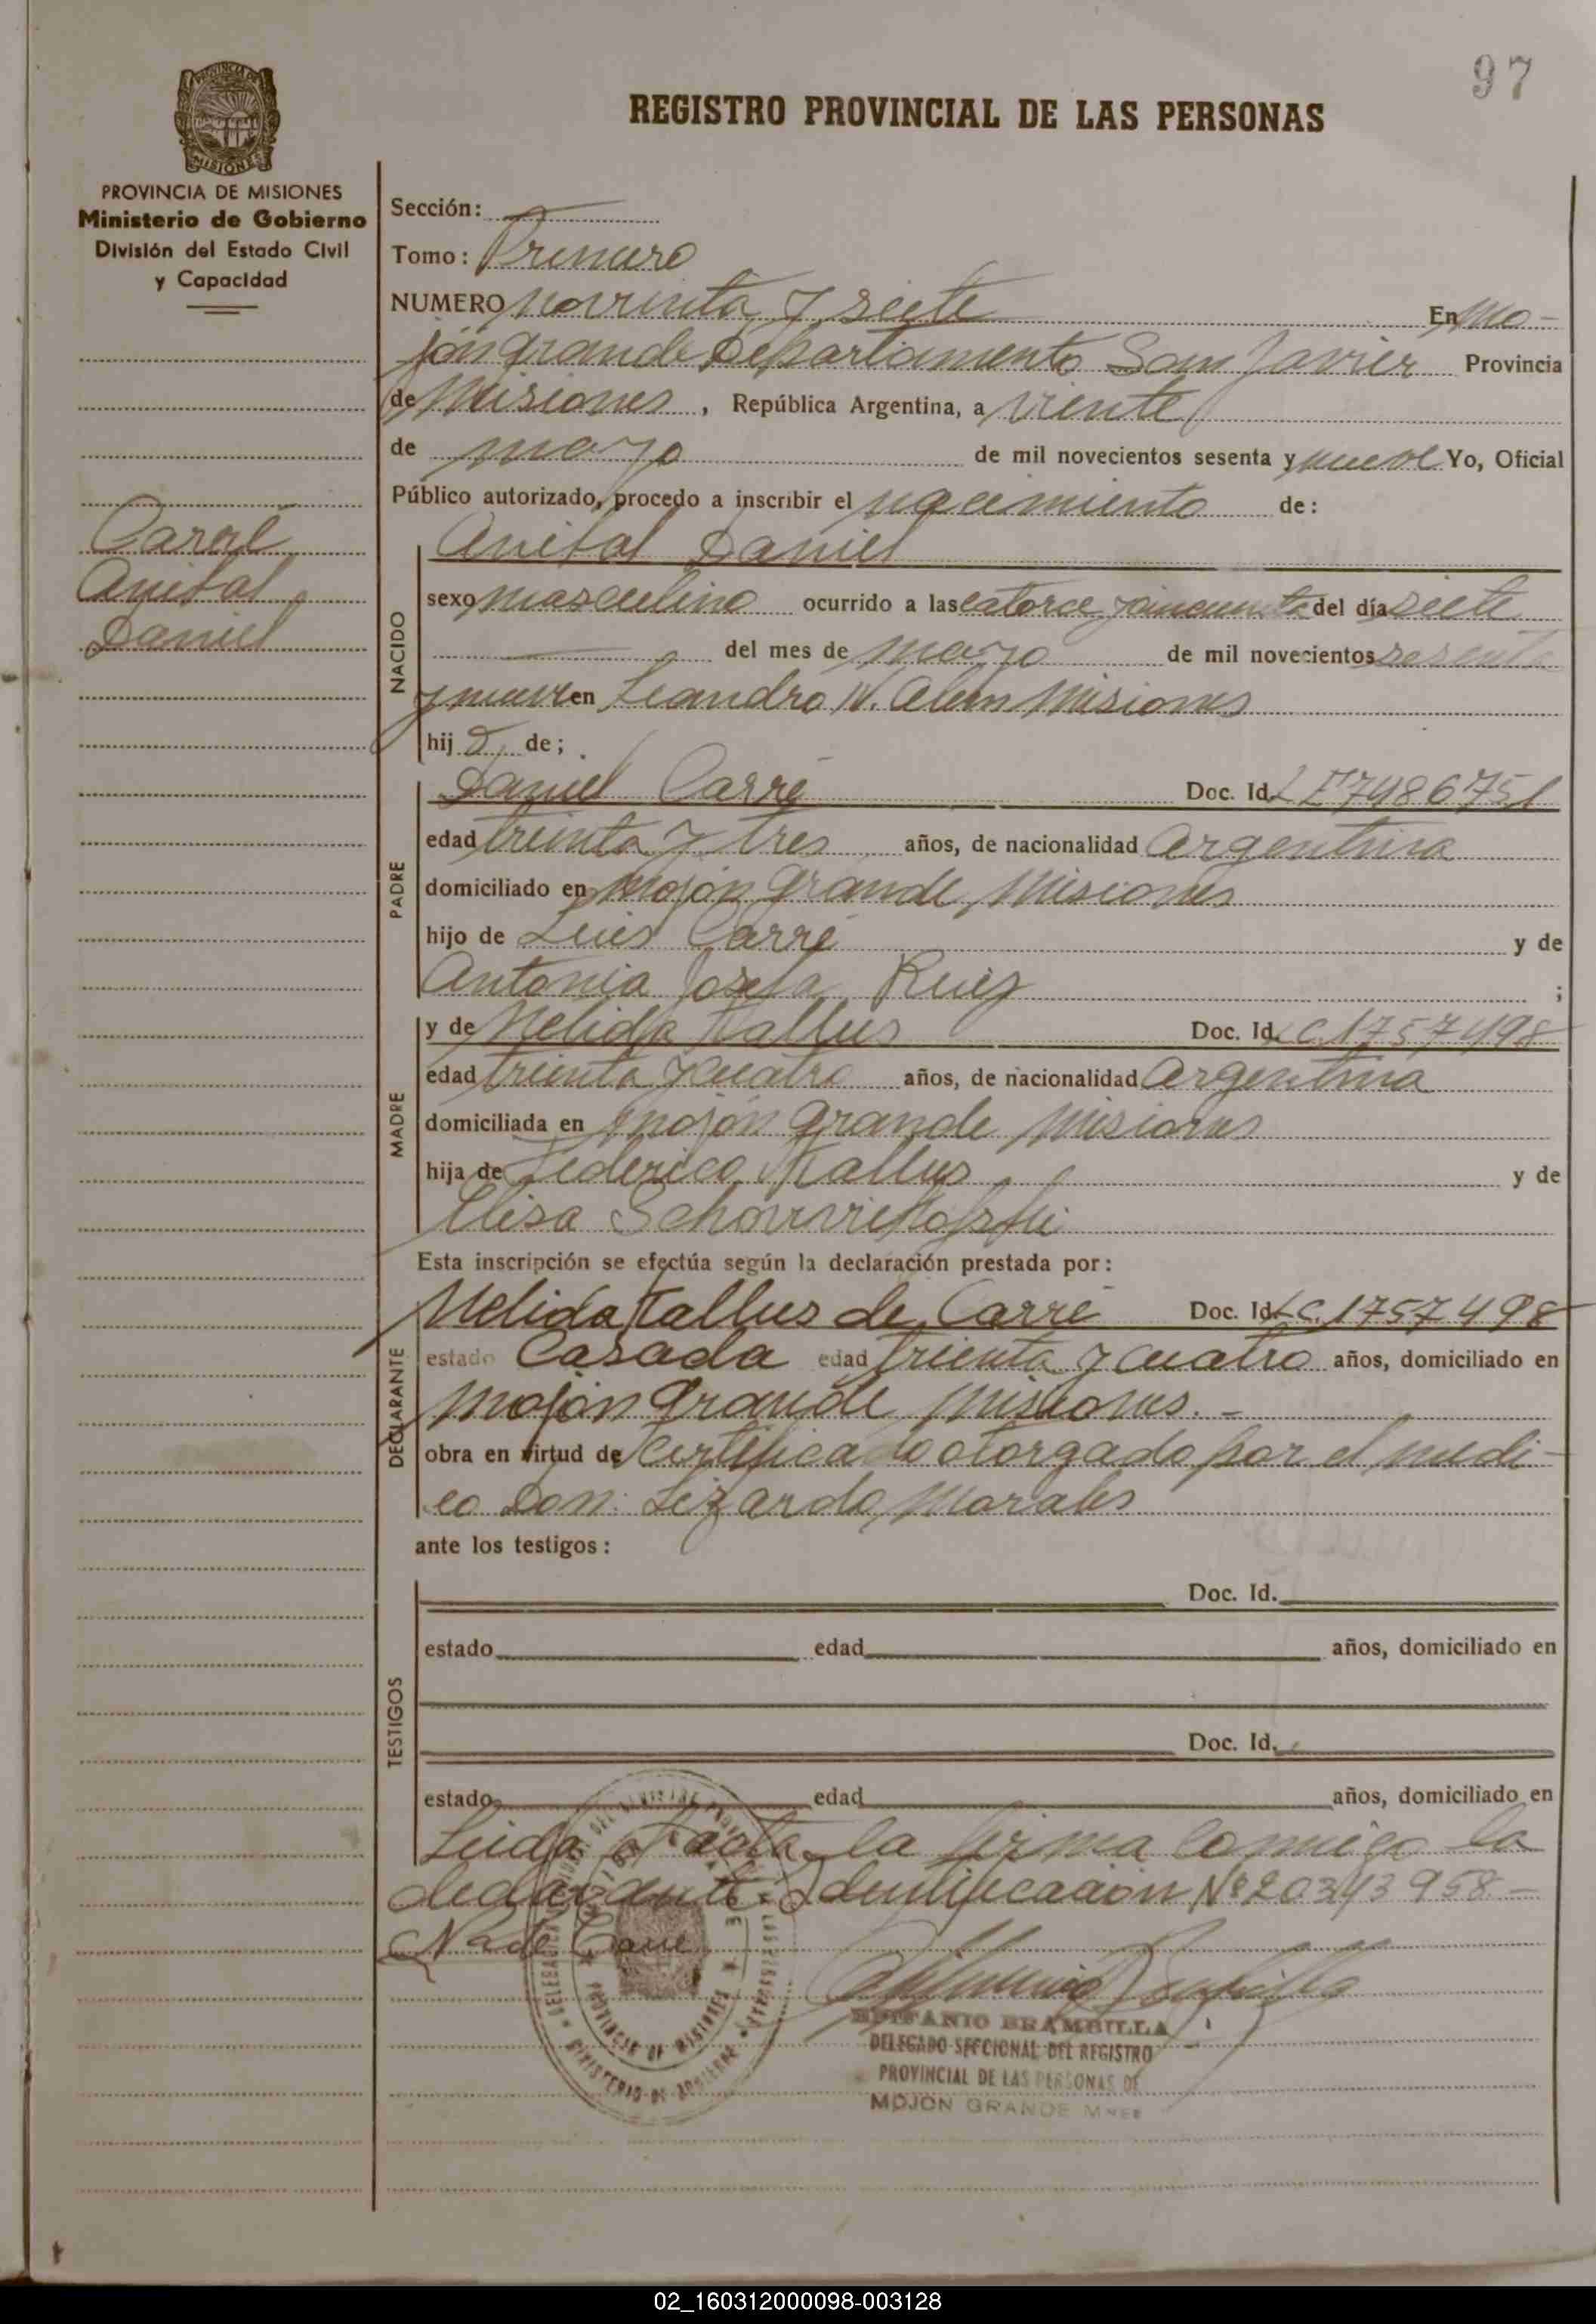 97
REGISTRO PROVINCIAL DE LAS PERSONAS
PROVINCIA DE MISIONES
Ministerio de Gobierno
División del Estado Civil
y Capacidad
Carré
Anibal
Daniel
Sección:
Tomo: Primero
NUMERO noventa y siete En Mo-
jón grande Departamento San Javier Provincia
de Misiones, República Argentina, a veinte
de mayo de mil novecientos sesenta y nueve Yo, Oficial
Público autorizado, procedo a inscribir el nacimiento de:
NACIDO
Anibal Daniel
sexo masculino ocurrido a las catorce y cincuenta del día siete
del mes de mayo de mil novecientos sesenta
y nueve en Leandro N. Alem Misiones
hij o, de;
PADRE
Daniel Carré Doc. Id. L E 7486751
edad treinta y tres años, de nacionalidad Argentina
domiciliado en Mojón grande, Misiones
hijo de Luis Carré y de
Antonia Josefa Ruiz ;
MADRE
y de Nelida Kallus Doc. Id. L.C. 1757498
edad treinta y cuatro años, de nacionalidad Argentina
domiciliada en Mojón grande Misiones
hija de Federico Kallus y de
Elisa
Esta inscripción se efectúa según la declaración prestada por:
DECLARANTE
Nelida Kallus de Carré Doc. Id. L.C. 1757498
estado Casada edad treinta y cuatro años, domiciliado en
Mojón Grande Misiones.-
obra en virtud de Certificado otorgado por el medi-
co Don: Lizardo Morales
ante los testigos:
TESTIGOS
Doc. Id.
estado edad años, domiciliado en
Doc. Id.
estado edad años, domiciliado en
Leida el acta la firma conmigo la
declarante Identificación Nº 20343958.-
N K de Carré
EPIFANIO BRAMBILLA
DELEGADO SECCIONAL DEL REGISTRO
PROVINCIAL DE LAS PERSONAS DE
MOJON GRANDE Mnes
PROVINCIA DE MISIONES
MINISTERIO DE GOBIERNO
02_160312000098-003128